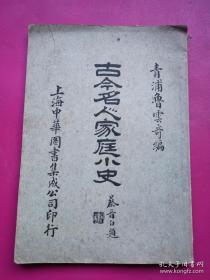 青浦魯雲奇編
古今名人家庭小史
上海中華圖書集成公司印行